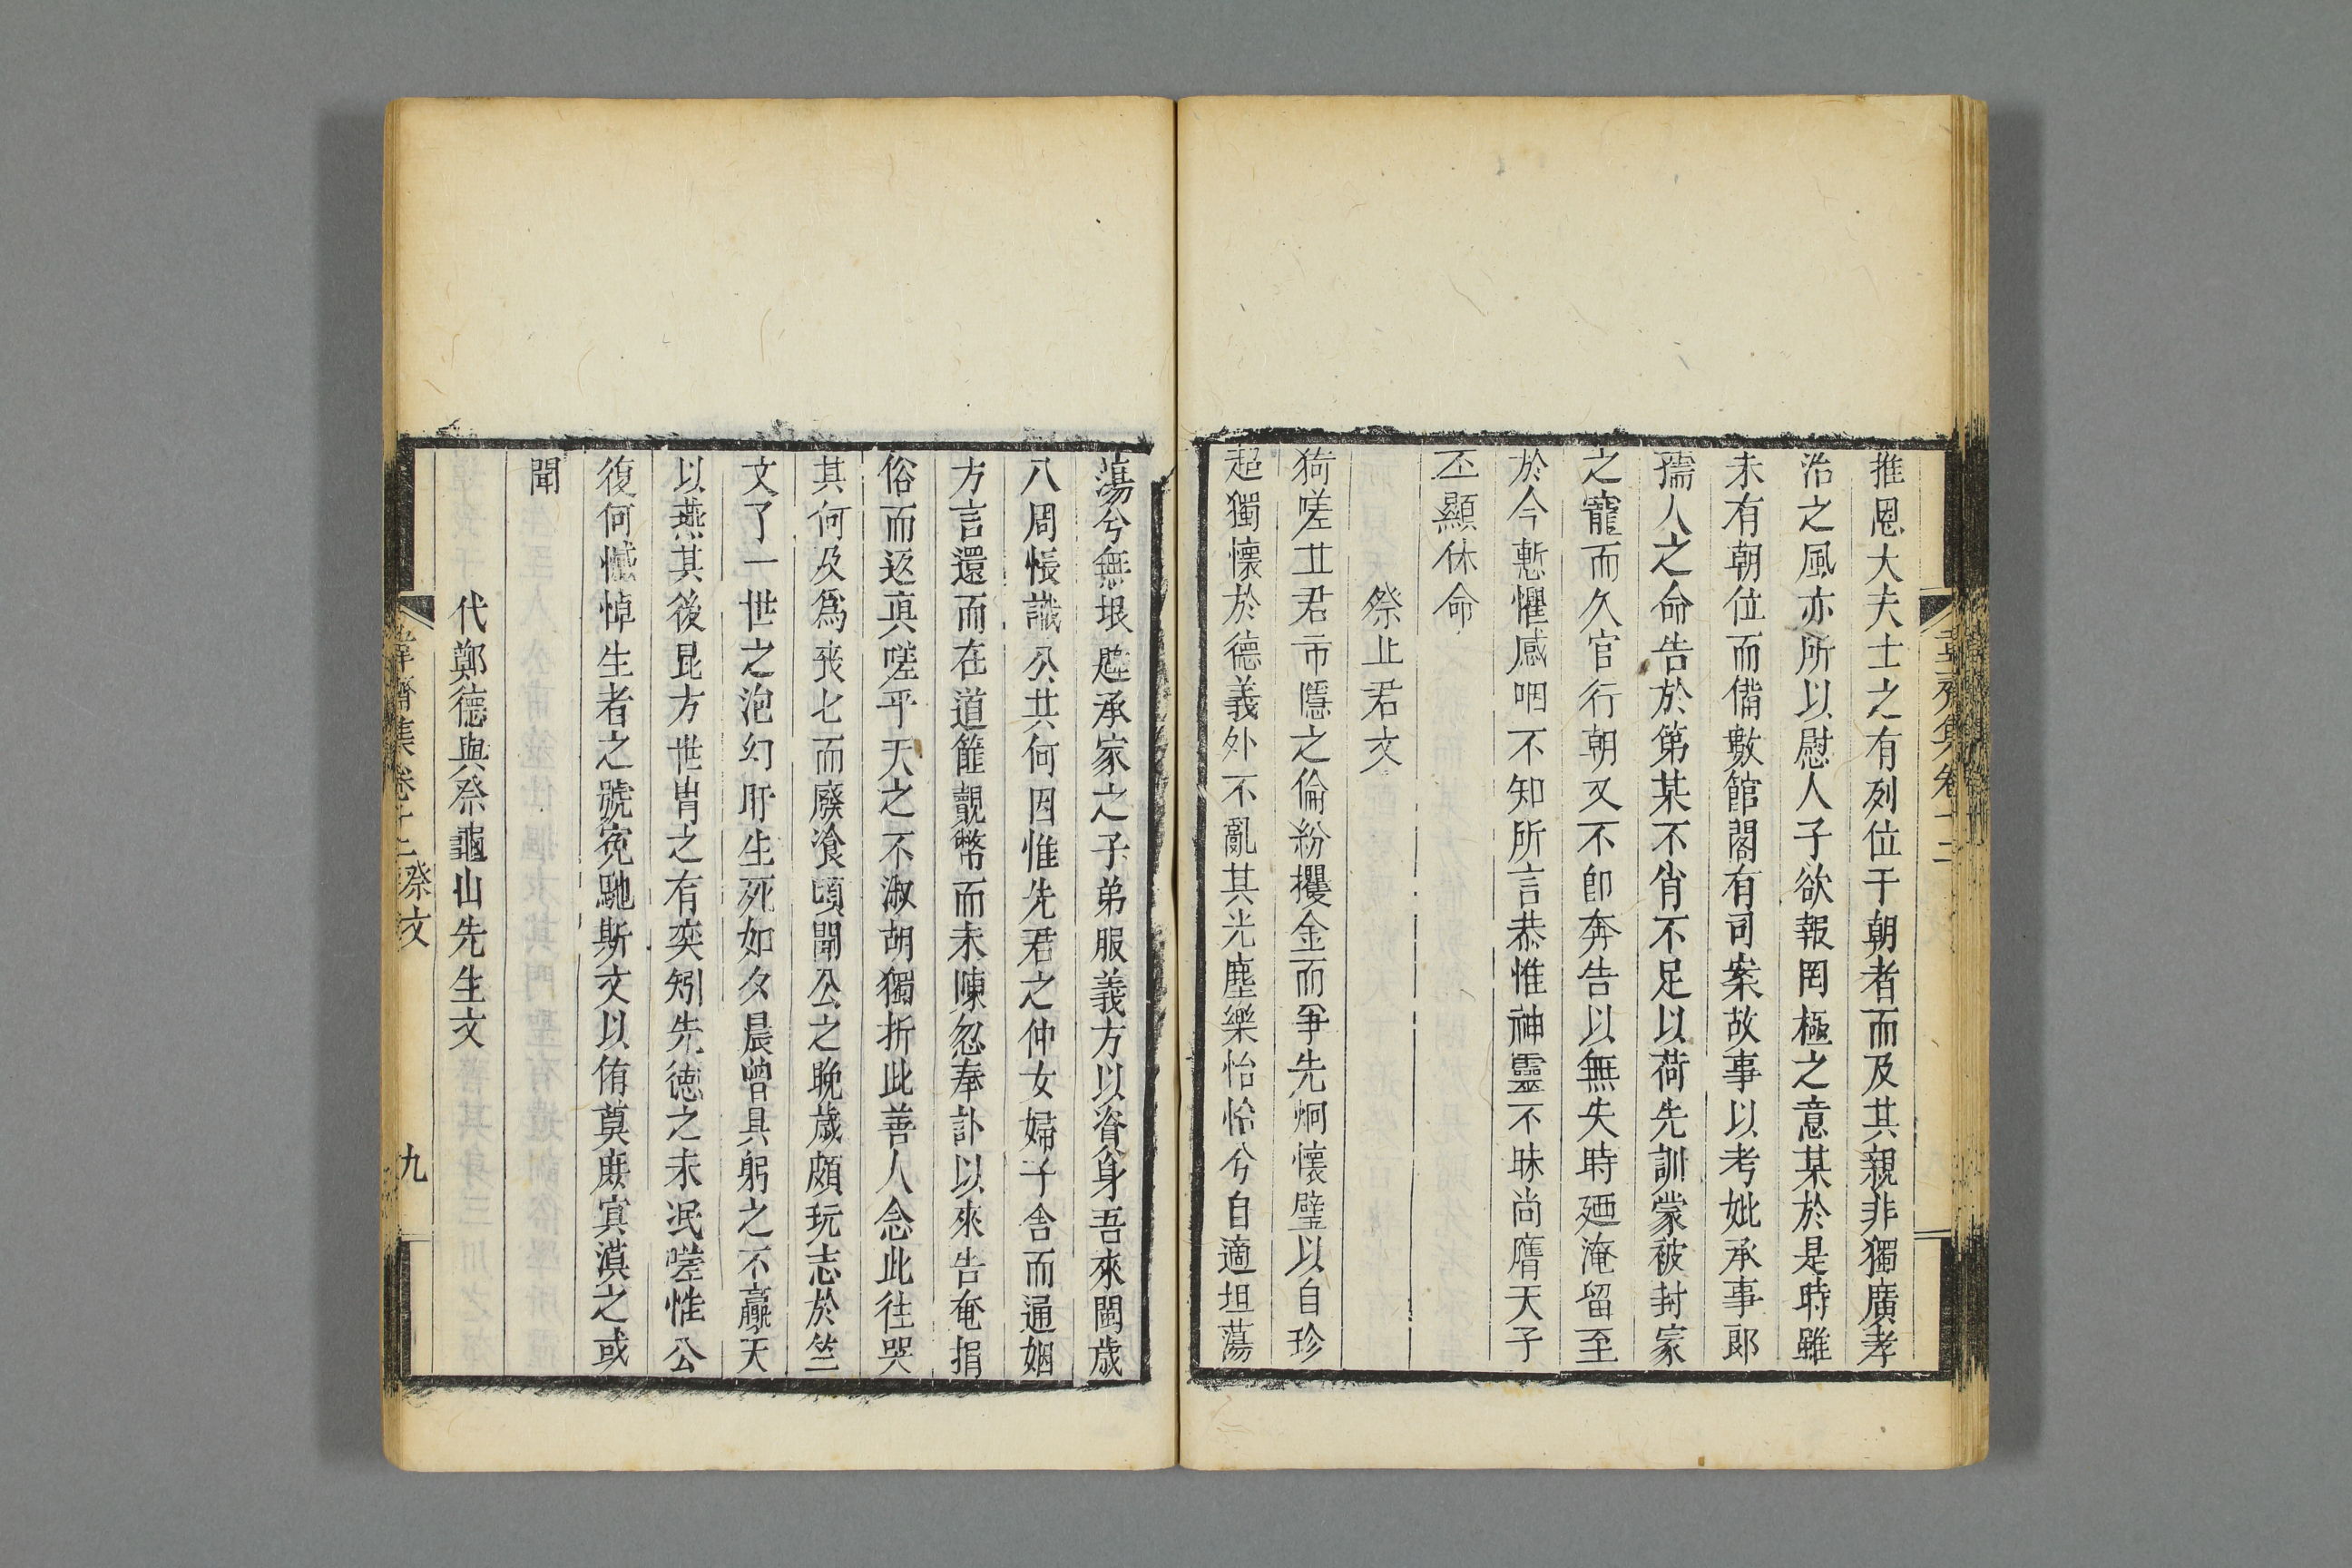 推恩大夫士之有列位于朝者而及其親非獨廣孝
治之風亦所以慰人子欲報罔極之意某於是時雖
未有朝位而備數館閣有司案故事以考妣承事郎
孺人之命告於第某不肖不足以荷先訓蒙被封家
之寵而久官行朝又不卽奔告以無失時廼淹留至
於今慙懼感咽不知所言恭惟神靈不昧尚膺天子
丕顯休命
祭止君文
猗嗟丘君市隱之倫紛攫金而爭先炯懷璧以自珍
超獨懷於德義外不亂其光塵樂怡怡兮自適坦蕩
蕩兮無垠慰承家之子弟服義方以脊身吾來閩歲
八周悵識公其何因惟先君之仲女婦子舍而通姻
方言還而在道雖覿幣而未陳忽奉訃以來告奄捐
俗而返真嗟乎天之不淑胡獨折此善人念此往哭
其何及爲喪匕而廢飡頃聞公之晚歲頗玩志於竺
文了一世之泡幻肝生死如夕晨曾具躬之不羸天
以燕其後昆方世胄之有奕矧先徳之未泯嗟惟公
復何憾悼生者之號寃馳斯文以侑奠庶寞漠之或
聞
代鄭德與祭龜山先生文
韋齋集卷十二 祭文 九